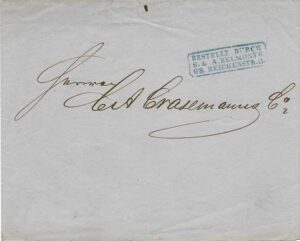 BESTELLT DURCH
S. & A. BELMONTE
GR. REICHENSTR.
Herren
C A Crasemann & Co